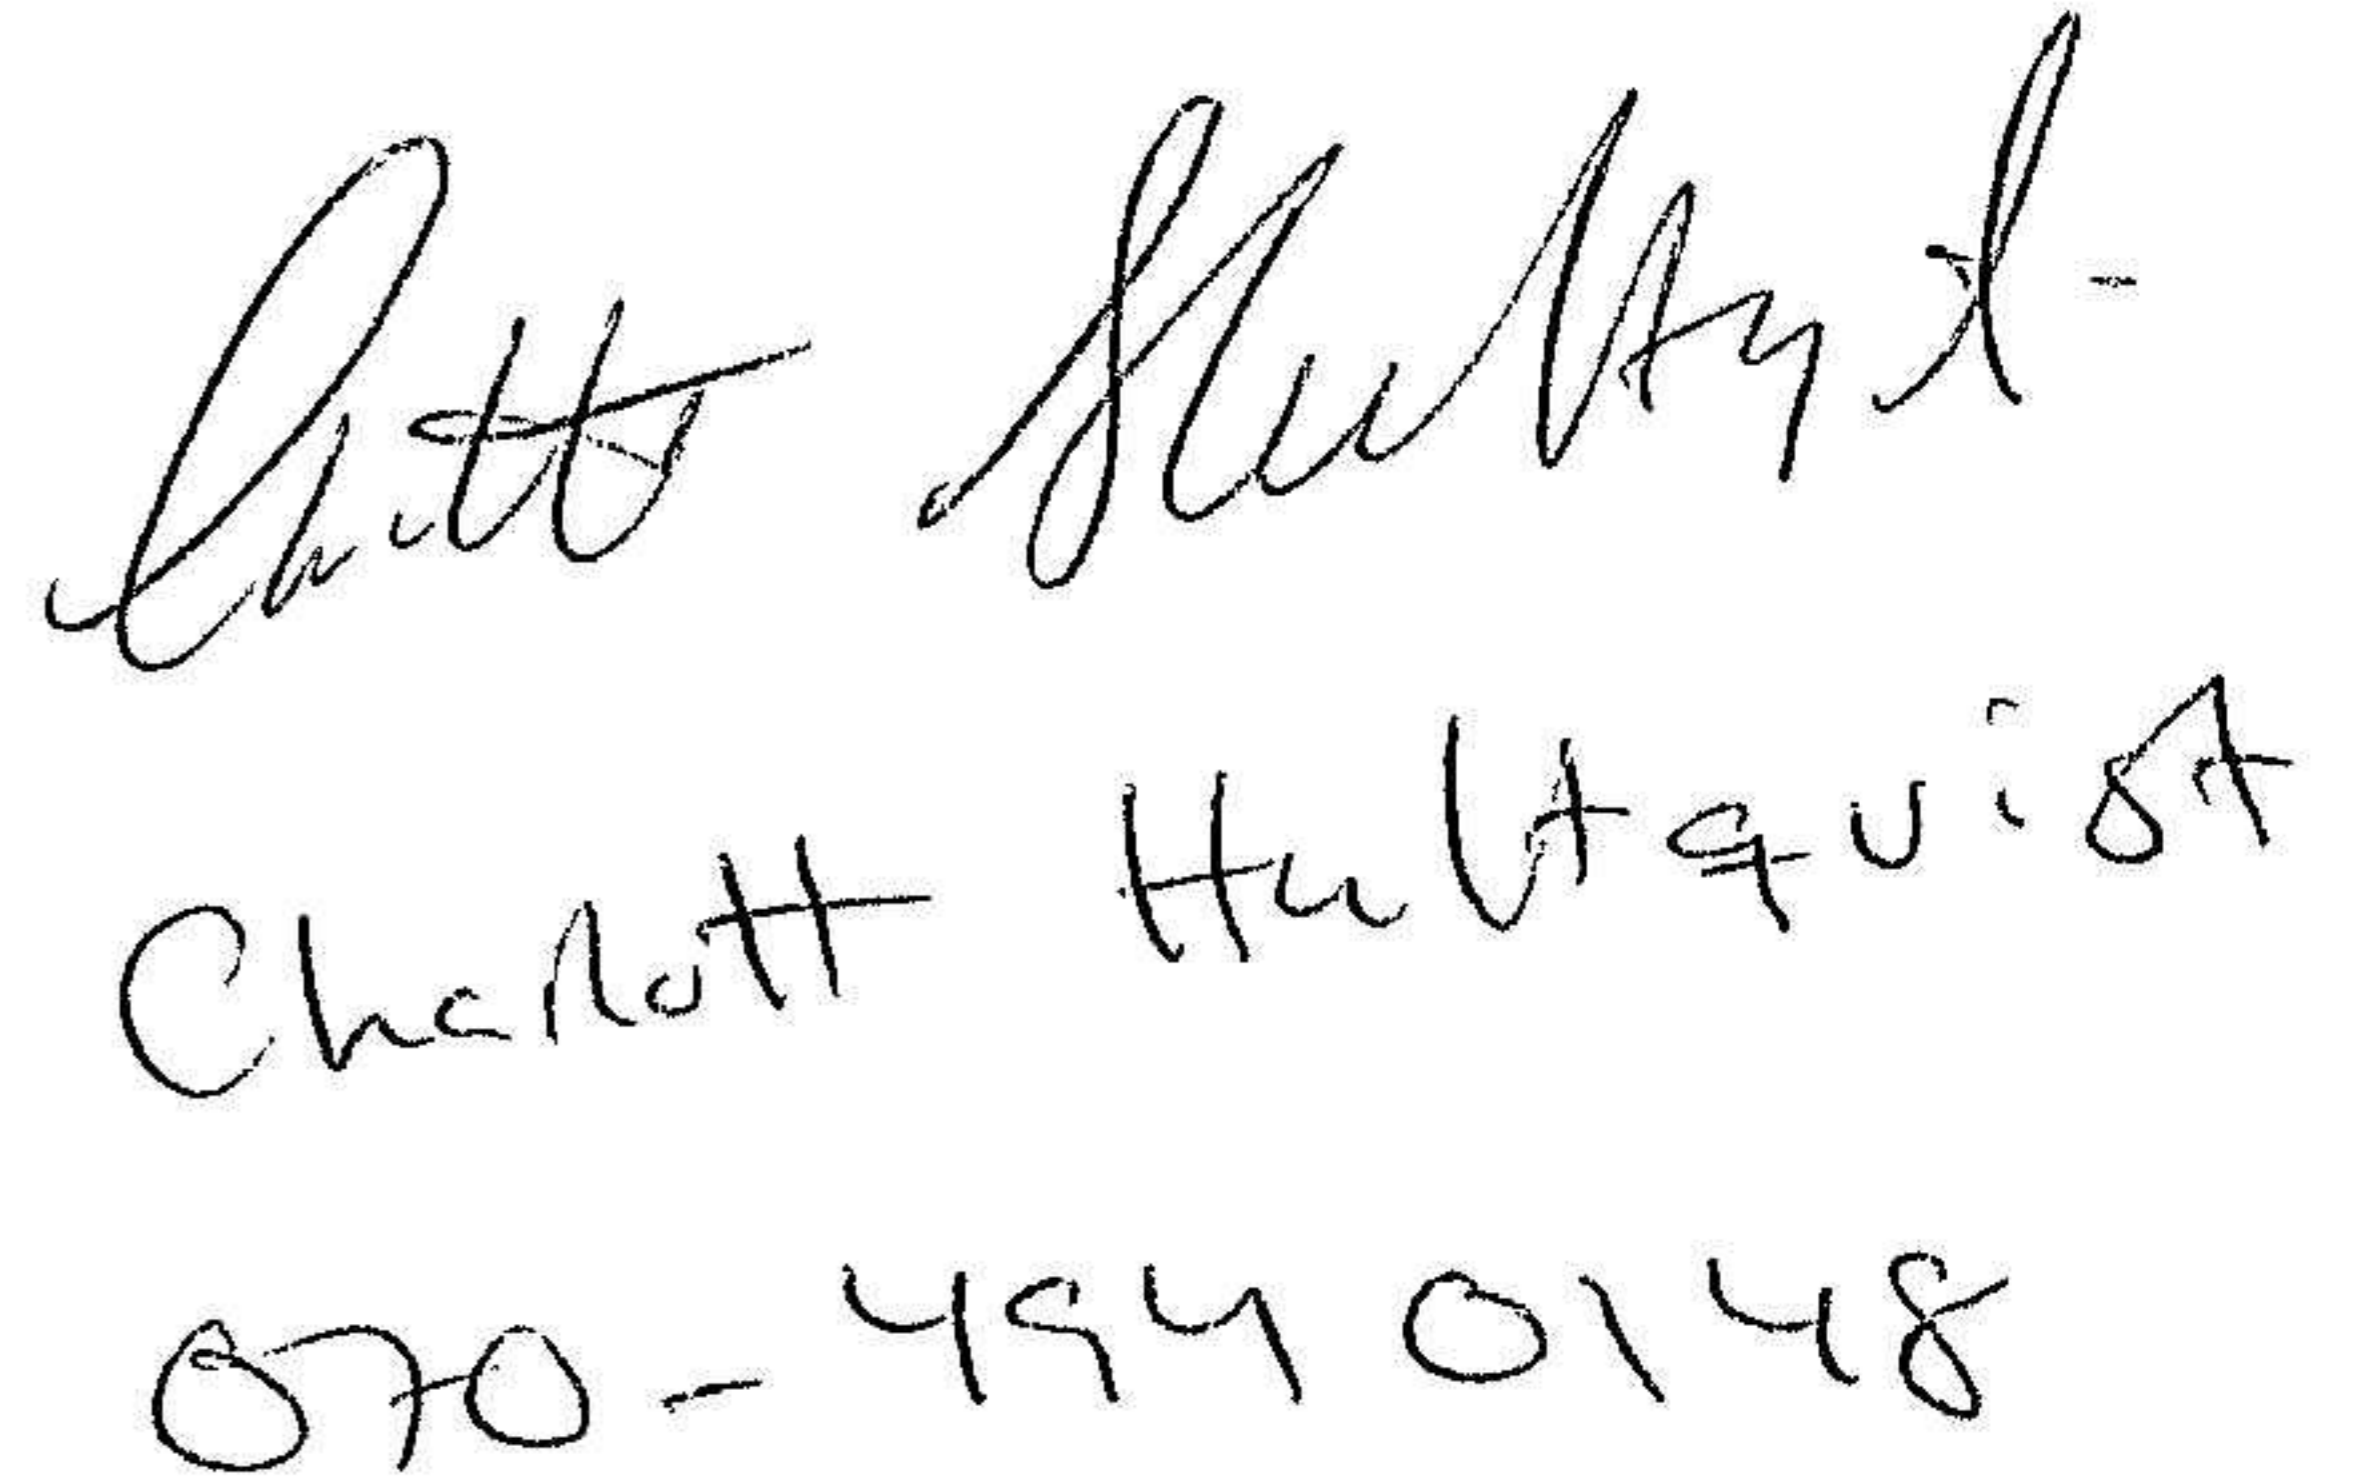 Charlott Hultquist
Charlott Hultquist
070-494 0148